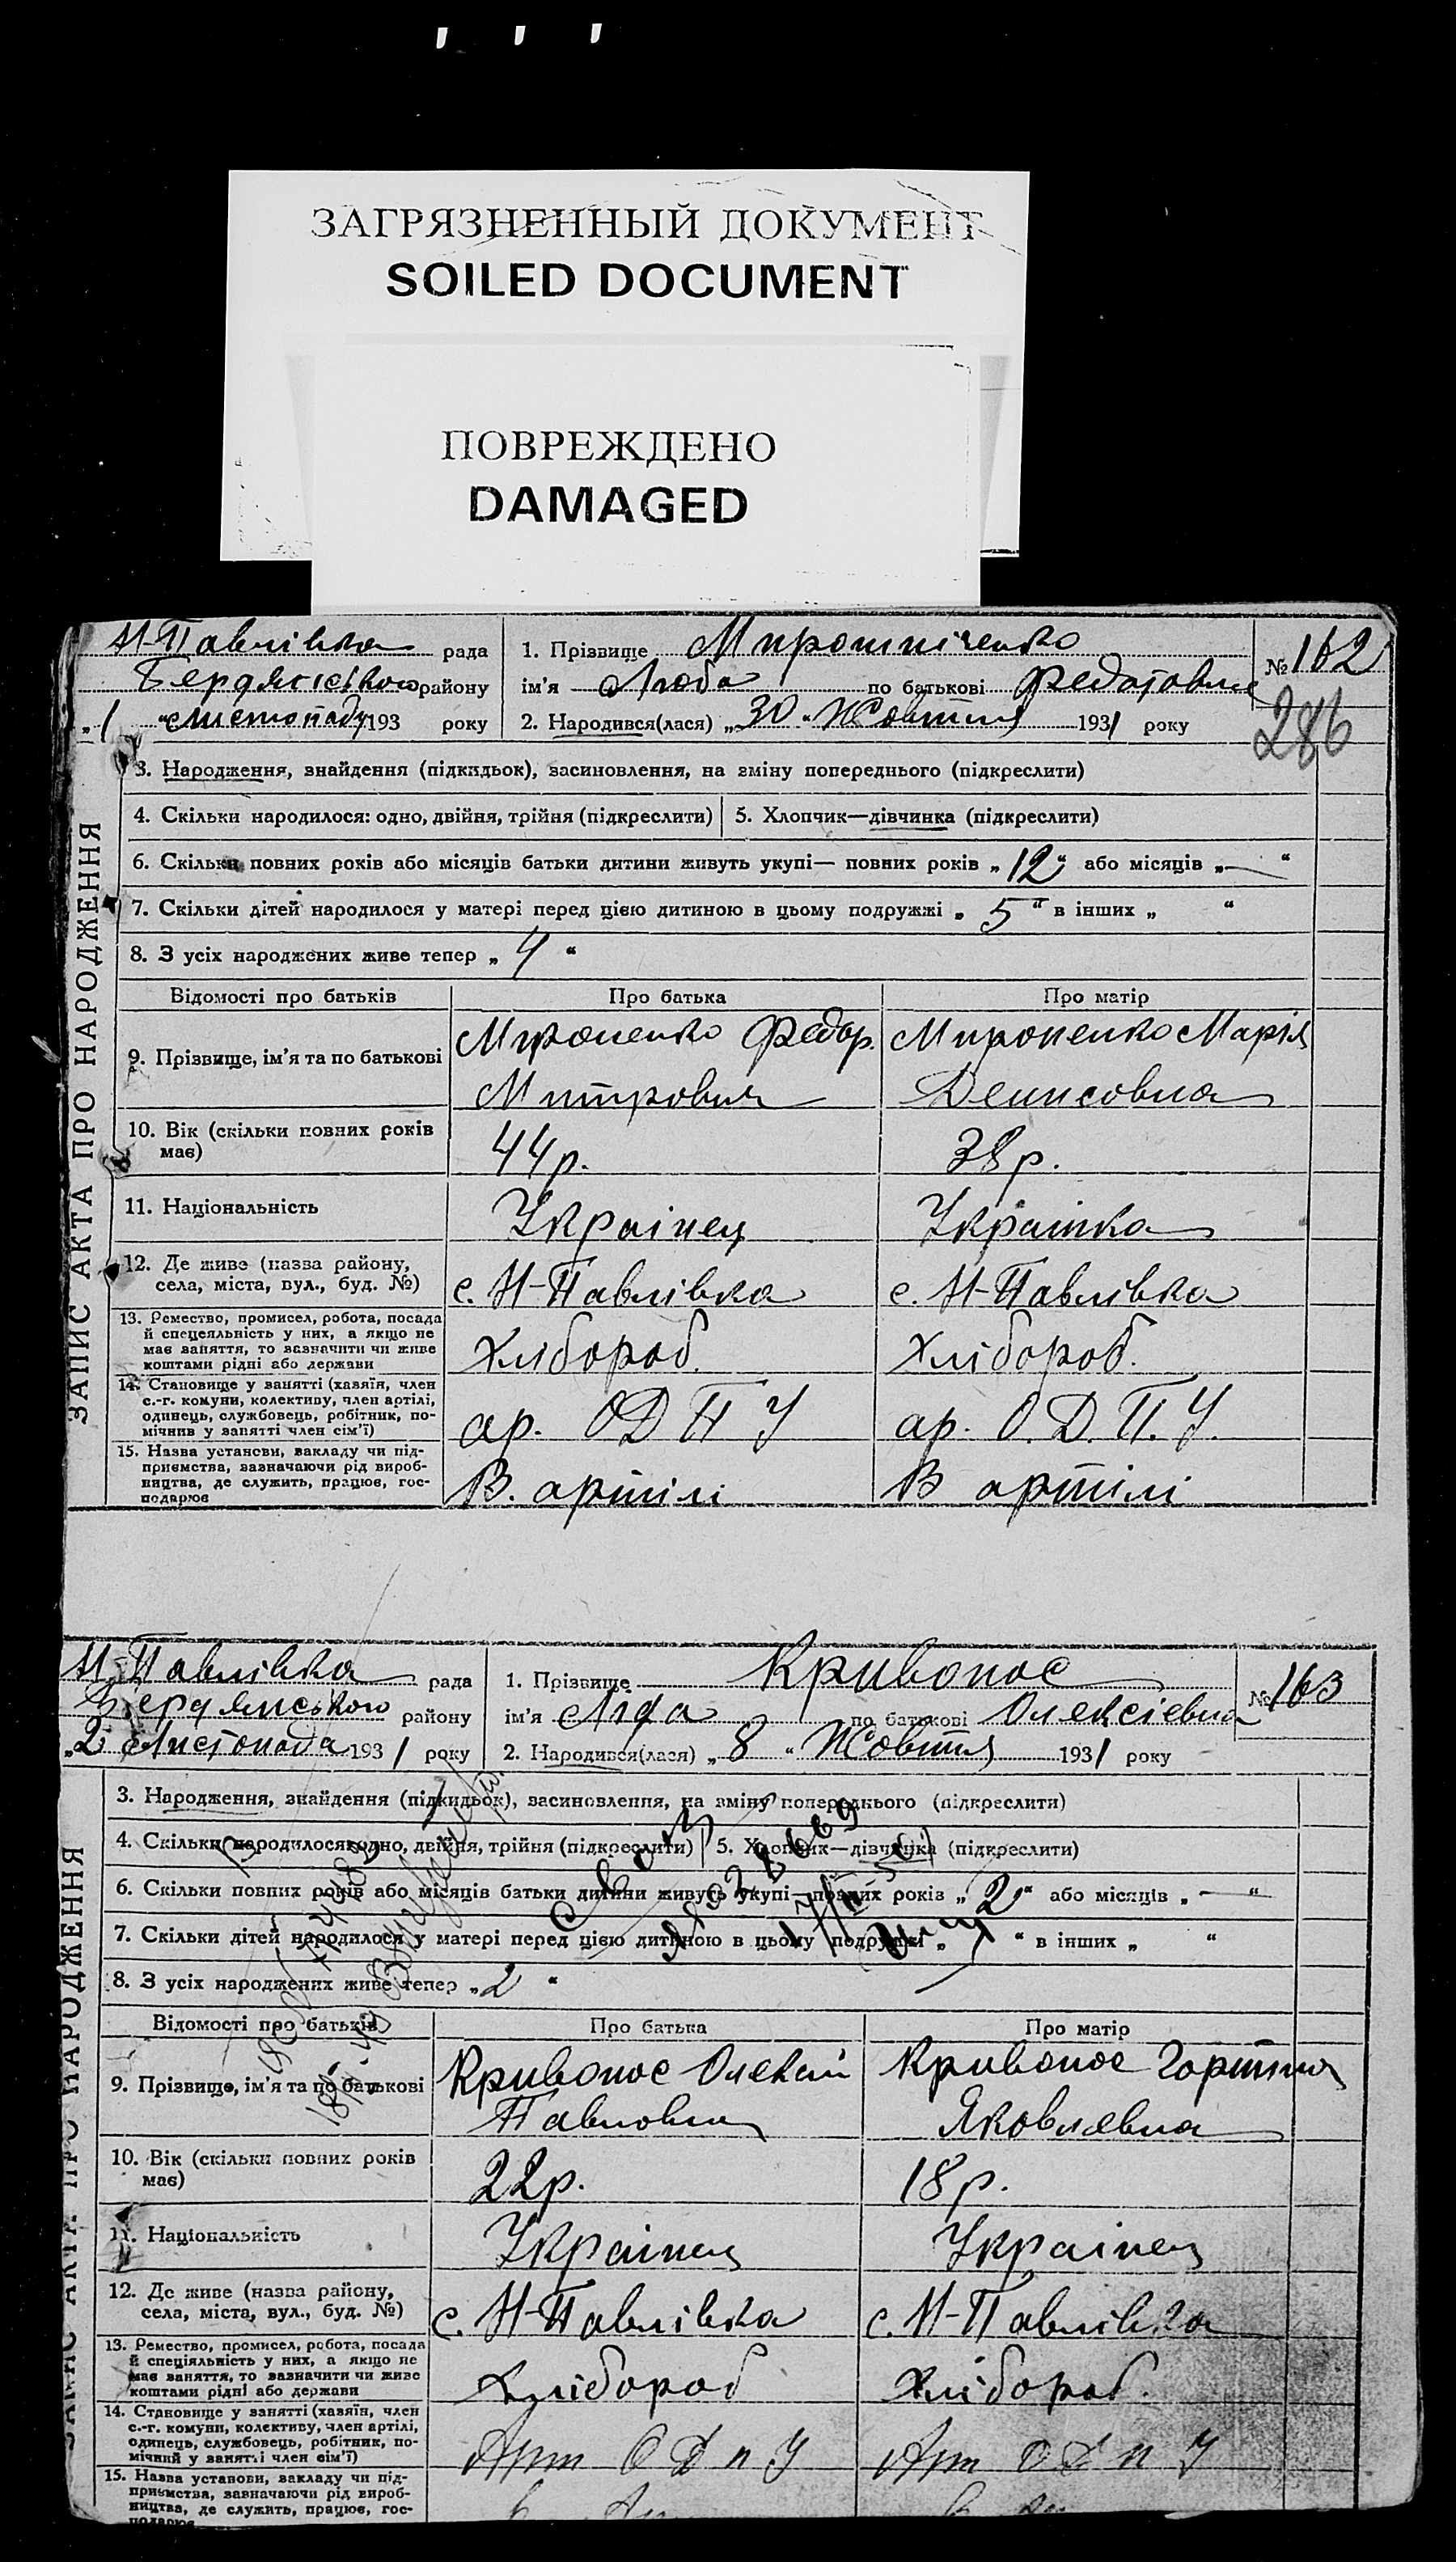 ЗАГРЯЗНЕННЫЙ ДОКУМЕНТ
SOILED DOCUMENT
ПОВРЕЖДЕНО
DAMAGED
Н-Павлівка рада
Бердянського району
„1 “ листопаду 193 року
1. Прізвище Мирошніченко
ім'я Люба по батькові Федотовна
2. Народився(лася) „30“ Жовтня 1931 року
№ 162
286
ЗАПИС АКТА ПРО НАРОДЖЕННЯ
3. Народження, знайдення (підкидьок), засиновлення, на зміну попереднього (підкреслити)
4. Скільки народилося: одно, двійня, трійня (підкреслити) 5. Хлопчик—дівчинка (підкреслити)
6. Скільки повних років або місяців батьки дитини живуть укупі— повних років „12“ або місяців „—“
7. Скільки дітей народилося у матері перед цією дитиною в цьому подружжі „5“ в інших „ “
8. З усіх народжених живе тепер „4“
Відомості про батьків Про батька Про матір
9. Прізвище, ім'я та по батькові
Мироненко Федор.
Мироненко Марія
Денисовна
10. Вік (скільки повних років має) 44р. 38р.
11. Національність Українец Українка
12. Де живе (назва району, села, міста, вул., буд. №) с. Н-Павлівка с. Н-Павлівка
13. Ремество, промисел, робота, посада
й спеціяльність у них, а якщо не
має заняття, то зазначити чи живе
коштами рідні або держави
Хлібороб. Хлібороб.
14. Становище у занятті (хазяїн, член
с.-г. комуни, колективу, член артілі,
одинець, службовець, робітник, по-
мічник у занятті член сім'ї)
ар. ОДПУ ар. О.Д.П.У.
15. Назва установи, закладу чи під-
приємства, зазначаючи рід вироб-
ництва, де служить, працює, гос-
подарює
В. артілі В артілі
Н-Павлівка рада
Бердянського району
„2 Листопада 1931 року
1. Прізвище Кривонос
ім'я Ліда по батькові Олексієвна
2. Народився(лася) „8“ Жовтня 1931 року
№ 163
ЗАПИС АКТА ПРО НАРОДЖЕННЯ
3. Народження, знайдення (підкидьок), засиновлення, на зміну попереднього (підкреслити)
4. Скільки народилося: одно, двійня, трійня (підкреслити) 5. Хлопчик—дівчинка (підкреслити)
6. Скільки повних років або місяців батьки дитини живуть укупі—повних років „2“ або місяців „—“
7. Скільки дітей народилося у матері перед цією дитиною в цьому подружжі „ “ в інших „ “
8. З усіх народжених живе тепер „2“
Відомості про батьків Про батька Про матір
9. Прізвище, ім'я та по батькові
Кривонос Олексій
Кривонос Горпина
Яковлевна
10. Вік (скільки повних років має) 22р. 18р.
11. Національність Українец Українец
12. Де живе (назва району, села, міста, вул., буд. №) с. Н-Павлівка с. Н-Павлівка
13. Ремество, промисел, робота, посада
й спеціяльність у них, а якщо не
має заняття, то зазначити чи живе
коштами рідні або держави
Хлібороб Хлібороб.
14. Становище у занятті (хазяїн, член
с.-г. комуни, колективу, член артілі,
одинець, службовець, робітник, по-
мічний у занятті член сім'ї)
Арт ОДПУ Арт ОДПУ
15. Назва установи, закладу чи під-
приємства, зазначаючи рід вироб-
ництва, де служить, працює, гос-
подарює